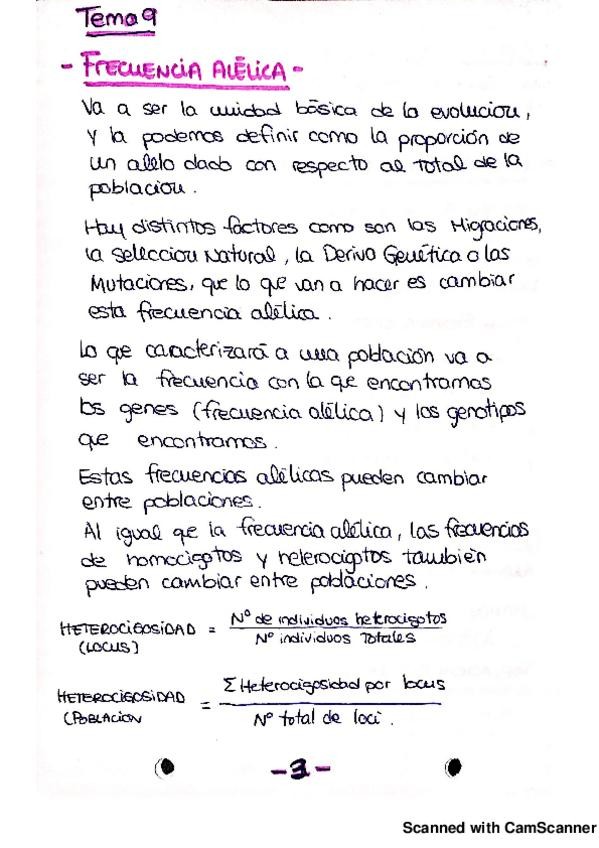 Tema 9
- FRECUENCIA ALÉLICA -
Va a ser la unidad básica de la evolucion,
y la podemos definir como la proporción de
un alelo dado con respecto al total de la
poblacion.
Hay distintos factores como son las Migraciones,
la Seleccion Natural, la Deriva Genética o las
Mutaciones, que lo que van a hacer es cambiar
esta frecuencia alélica.
Lo que caracterizará a una población va a
ser la frecuencia con la que encontramos
los genes (frecuencia alélica) y los genotipos
que encontramos.
Estas frecuencias alélicas pueden cambiar
entre poblaciones.
Al igual que la frecuencia alélica, las frecuencias
de homocigotos y heterocigotos también
pueden cambiar entre poblaciones.
HETEROCIGOSIDAD = Nº de individuos heterocigotos
(LOCUS) Nº individuos Totales
HETEROCIGOSIDAD = Σ Heterocigosidad por locus
(POBLACION Nº total de loci.
-3-
Scanned with CamScanner